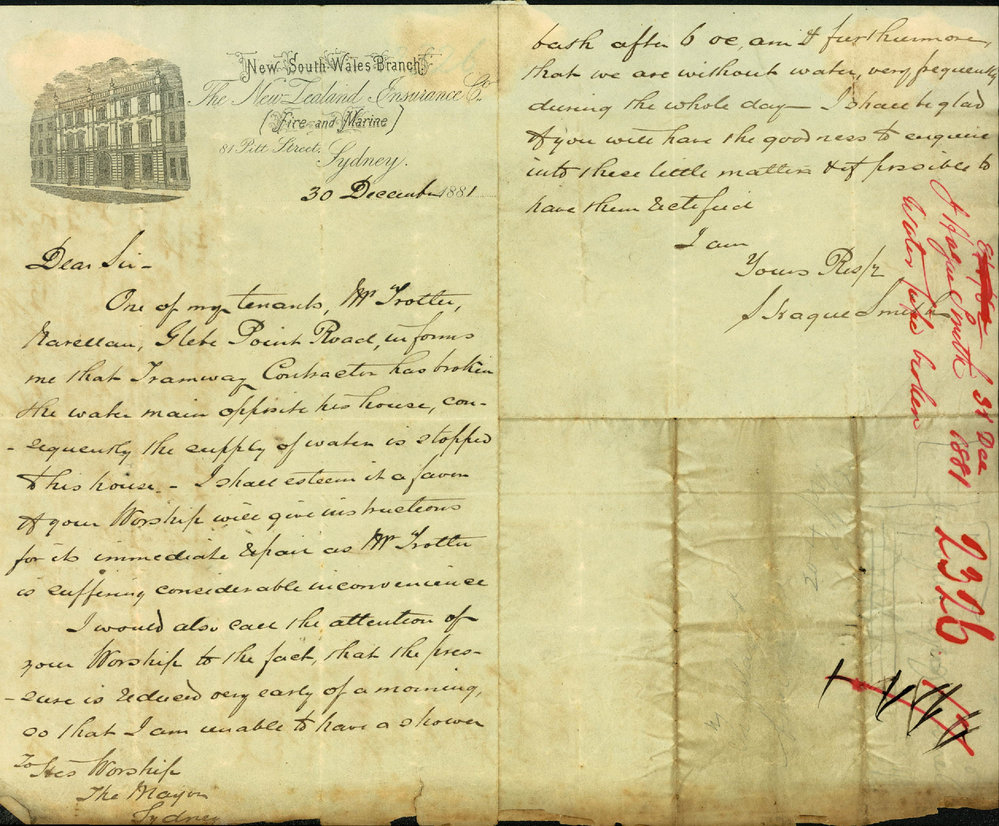 New South Wales Branch
The New Zealand Insurance Co.
(Fire and Marine)
81 Pitt Street,
Sydney.
30 December 1881
Dear Sir -
One of my tenants, Mr Trotter,
Narellan, Glebe Point Road, informs
me that Tramway Contractor has broken
the water main opposite his house, con-
-sequently the supply of water is stopped
to his house. - I shall esteem it a favor
if your Worship will give instructions
for its immediate repair as Mr Trotter
is suffering considerable inconvenience
I would also call the attention of
your Worship to the fact, that the pres-
-sure is reduced very early of a morning,
so that I am unable to have a shower
To His Worship
The Mayor
Sydney
bath after 6 oc, am & furthermore,
that we are without water, very frequently
during the whole day - I shall be glad
if you will have the goodness to enquire
into these little matters & if possible to
have them rectified
I am
Yours Resp/y
J Hague Smith
J Hague Smith
Water pipe broken
31 Dec
1881
2326